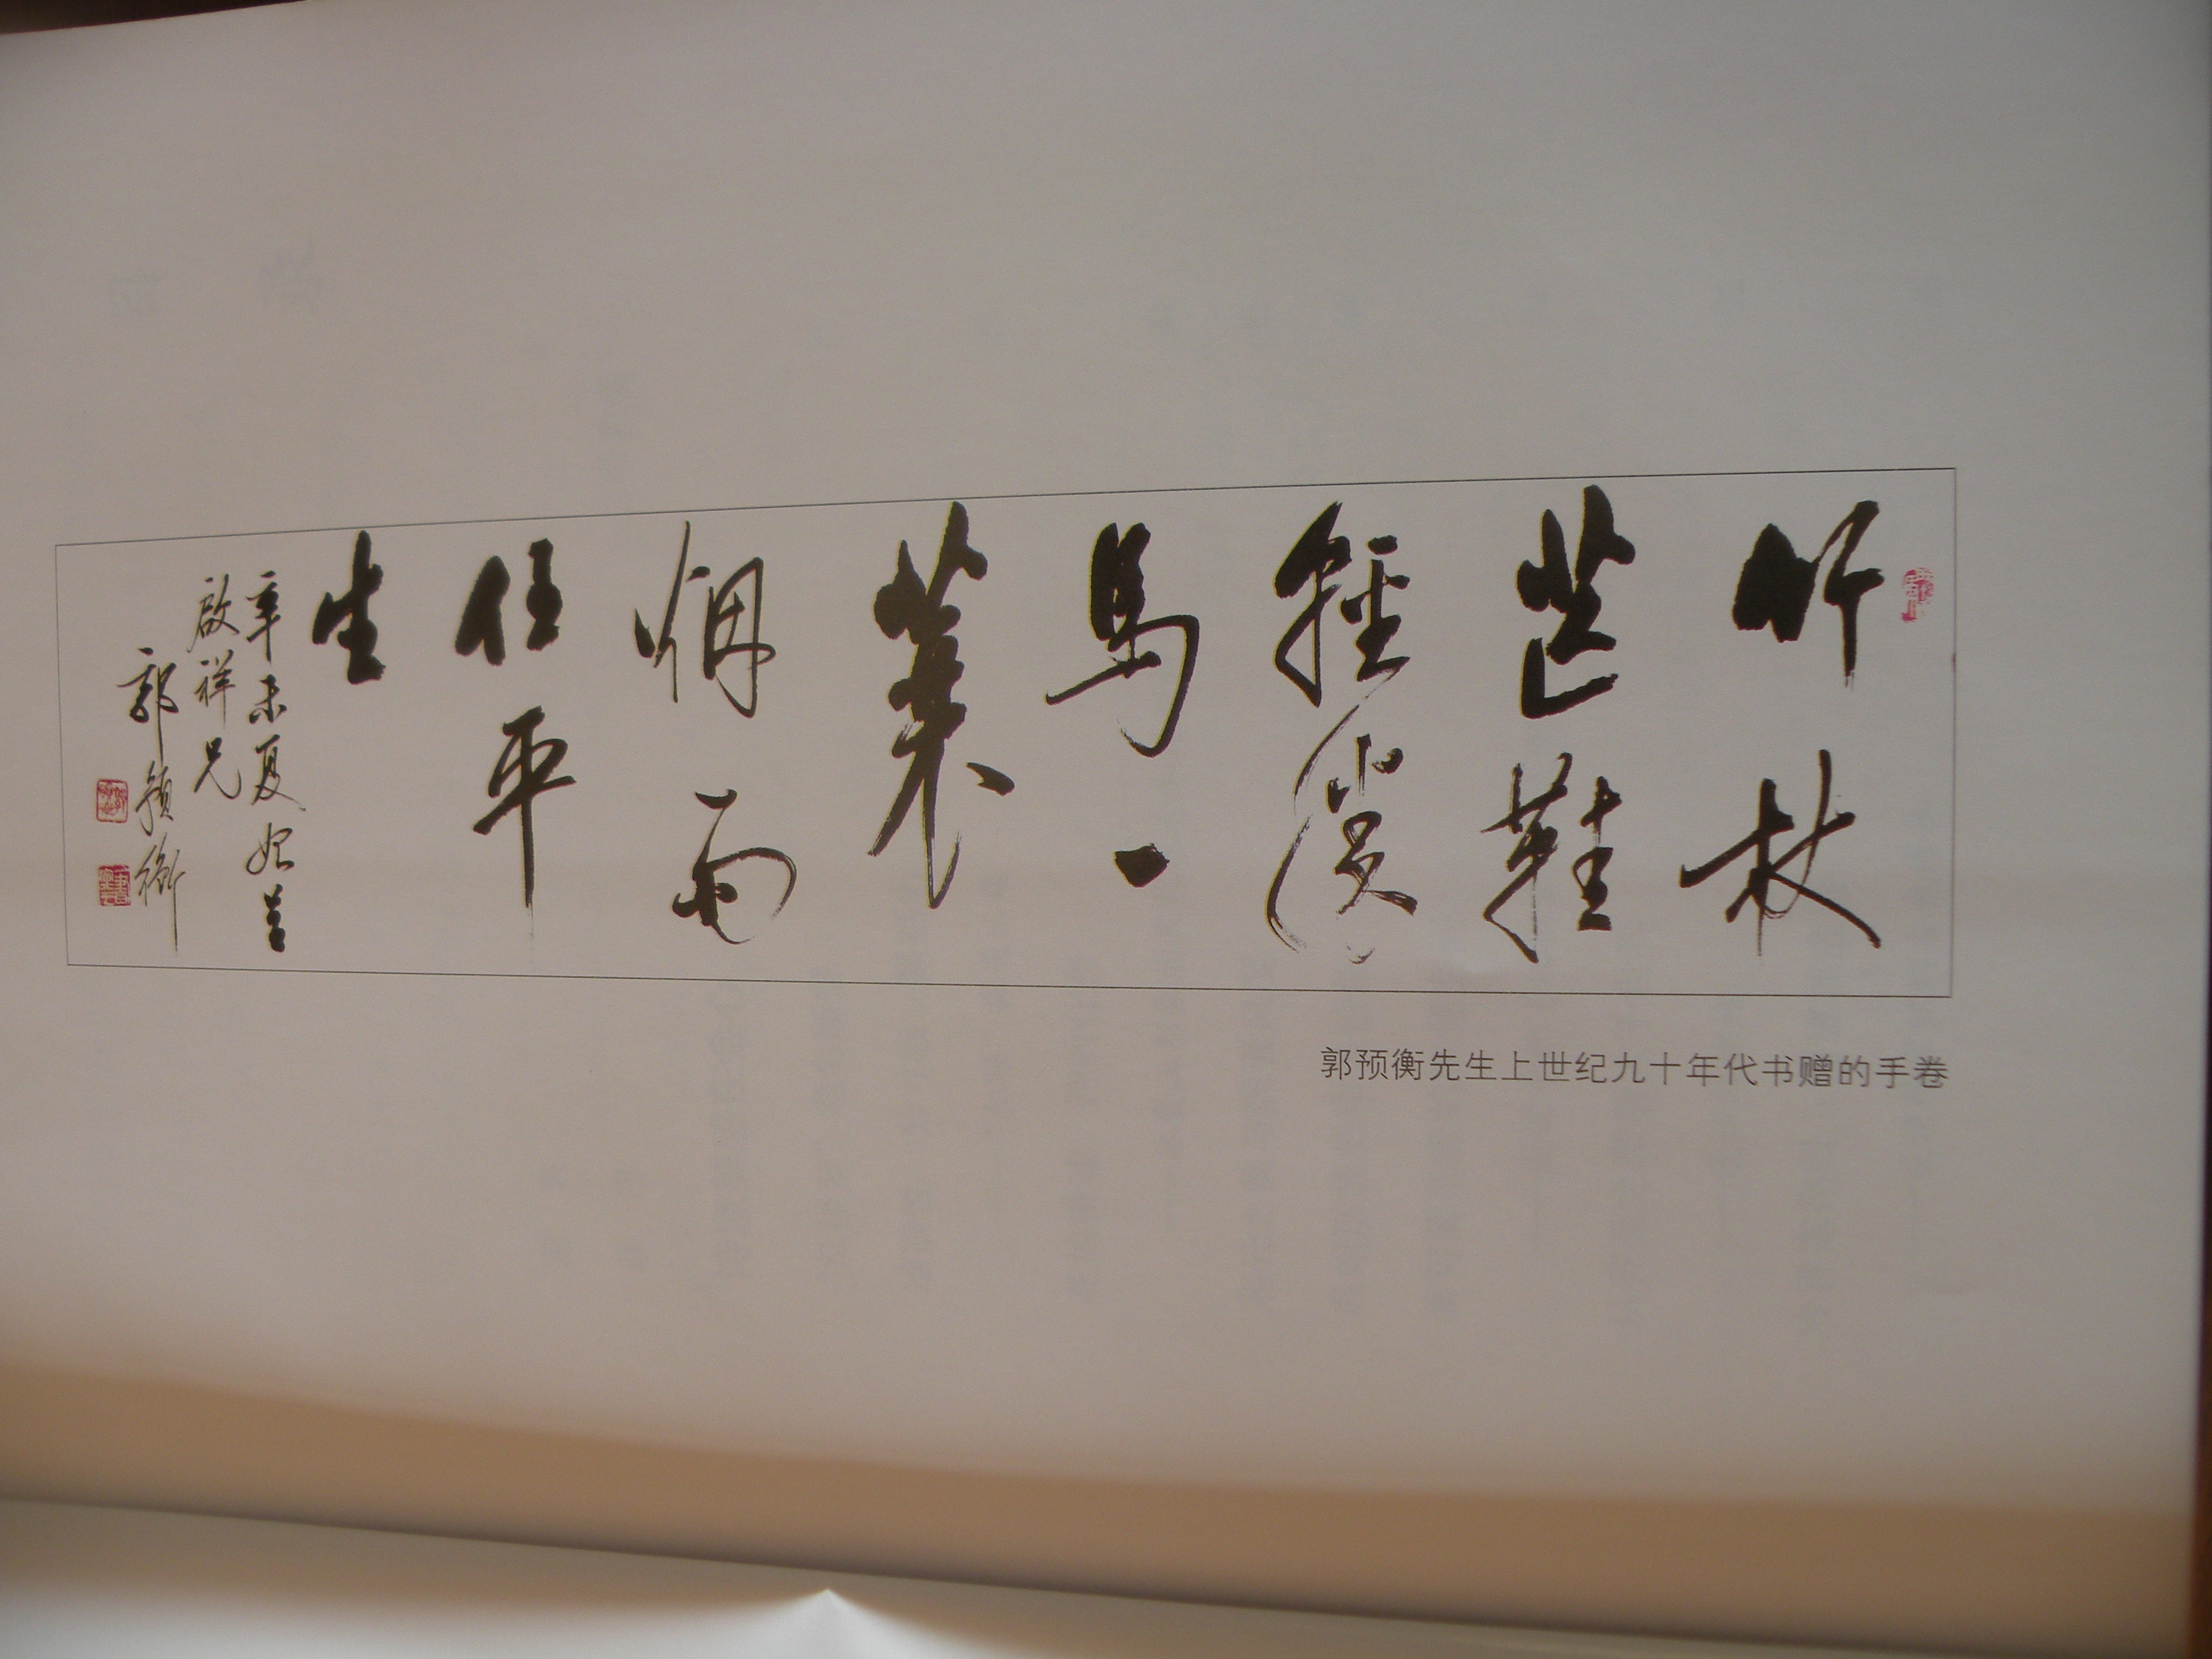 竹杖
芒鞋
輕勝
馬一
蓑
烟雨
任平
生
辛未夏呈
啟祥兄
郭預衡
郭预衡先生上世纪九十年代书赠的手卷